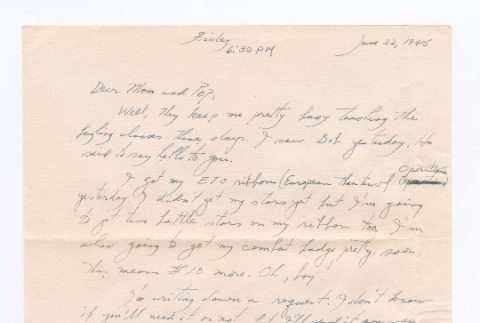 Friday
6:30 PM
June 22, 1945
Dear Mom and Pop,
Well, they keep me pretty busy teaching the
classes these days. I saw Bob yesterday. He
said to say hello to you.
Operations
I got my ETO ribbon (European Theater of
yesterday. I didn't get my stars yet but I'm going
to get two battle stars on my ribbon too. I'm
also going to get my combat badge pretty soon.
This means $10 more. Oh, boy!
I'm writing down a request. I don't know
if you'll need it or not, but I'll send it anyway